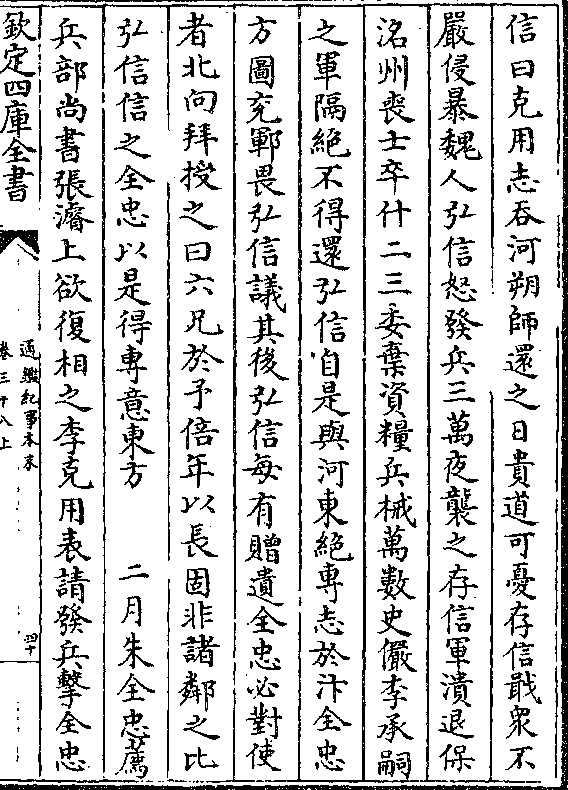 信曰克用志吞河朔師還之日貴道可憂存信戢衆不
嚴侵暴魏人弘信怒發兵三萬夜襲之存信軍潰退保
洺州喪士卒什二三委棄資糧兵械萬數史儼李承嗣
之軍隔絶不得還弘信自是與河東絶專志於汴全忠
方圖兖鄆畏弘信議其後弘信每有贈遺全忠必對使
者北向拜授之曰六兄於予倍年以長固非諸鄰之比
弘信信之全忠以是得專意東方　二月朱全忠薦
兵部尚書張濬上欲復相之李克用表請發兵擊全忠
欽定四庫全書
通鑑紀事本末
卷三十八上
四十